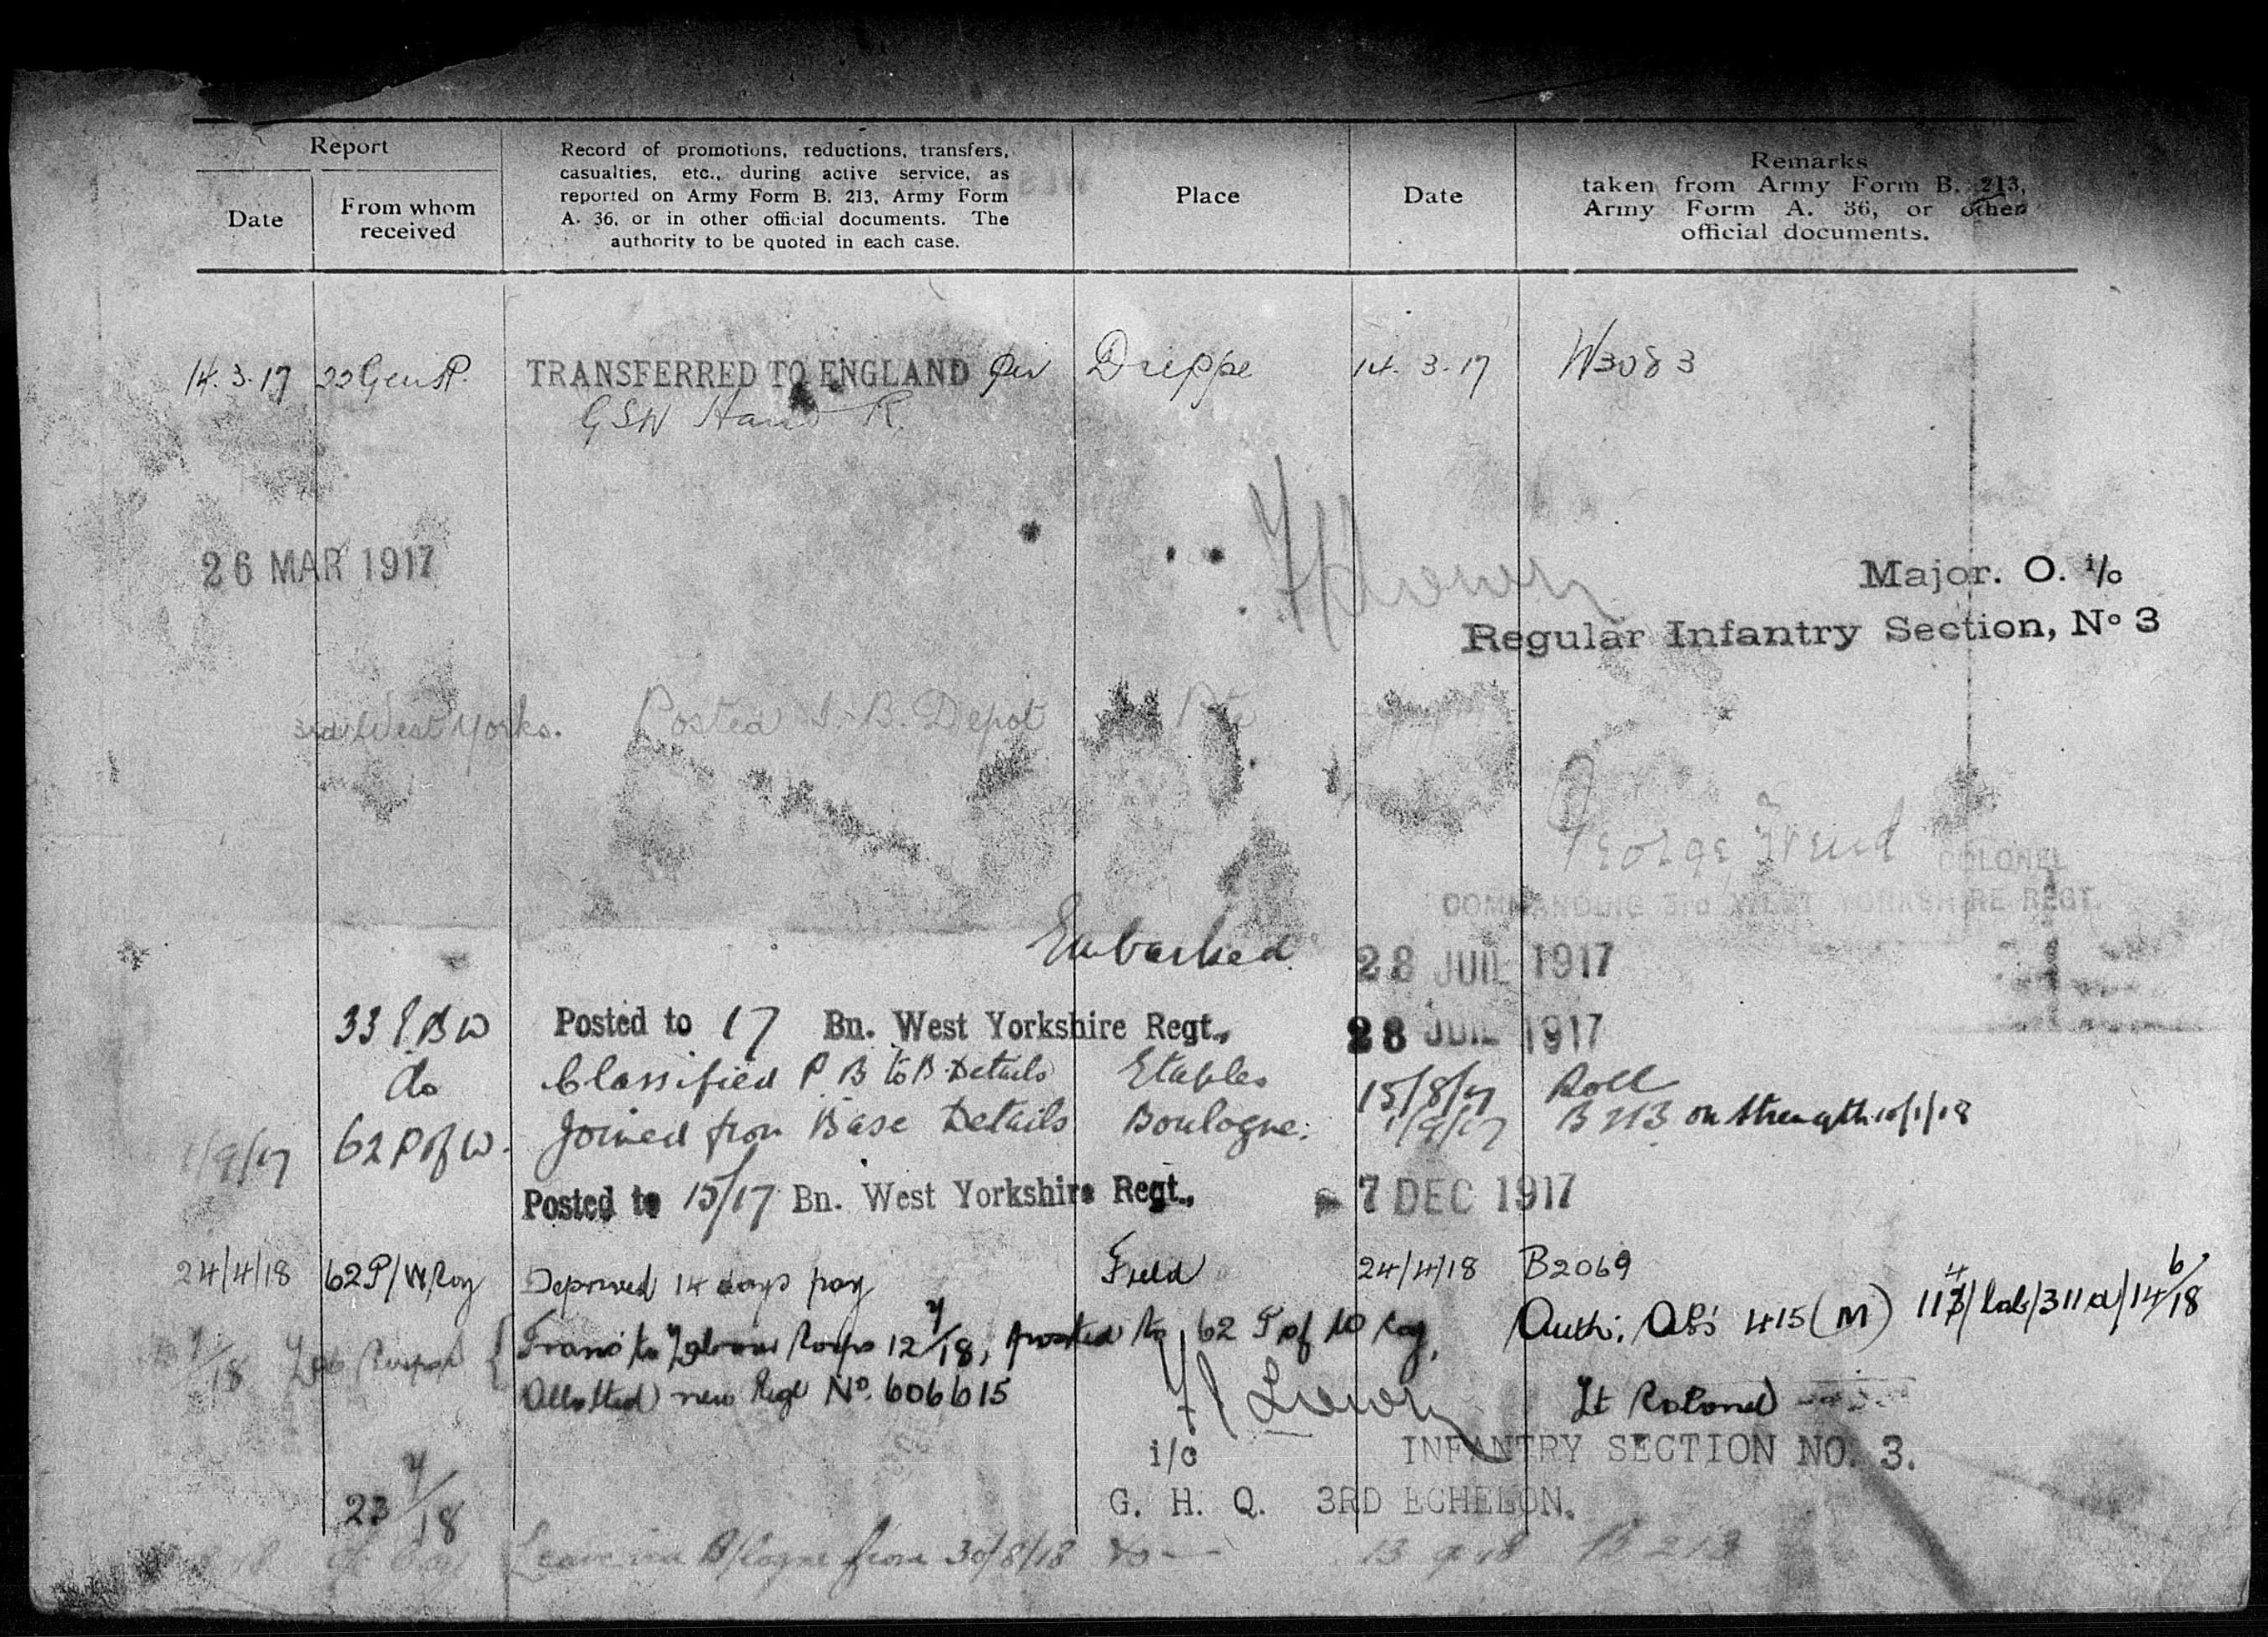 Report
Date
From whom
received
Record of promotions, reductions, transfers,
casualties, etc., during active service, as
reported on Army Form B. 213, Army Form
A. 36, or in other official documents. The
authority to be quoted in each case.
Place
Date
Remarks
taken from Army Form B. 213,
Army Form A. 36, or other
official documents.
14.3.17 22 Gen TRANSFERRED TO ENGLAND Dieppe 14.3.17 W3083
GSW Hand R.
26 MAR 1917
Major. O. i/c
Regular Infantry Section, No 3
3rd West Yorks. Posted I. B. Depot
George
COLONEL
COMMANDING 3rd WEST YORKSHIRE REGT.
Embarked 28 JUIL 1917
33 I B D Posted to 17 Bn. West Yorkshire Regt., 28 JUIL 1917
do Classified P B to B. Details Etaples 15/8/17 Roll
1/9/17 62 P of W. Joined from Base Details Boulogne. 1/9/17 B 213 on strength 10/1/18
Posted to 15/17 Bn. West Yorkshire Regt., 7 DEC 1917
24/4/18 62 P/W Coy Deprived 14 days pay Field 24/4/18 B2069
7/18 Lab Corps { Trans to Labour Corps 12 7/18, posted to 62 P of W Coy, Auth; 415 (M) /Lab/311a/14 6/18
Allotted new Regl No. 606615
Lt Colonel
i/c INFANTRY SECTION NO. 3.
23 7/18
G. H. Q. 3RD ECHELON.
Leave via B/logne from 30/8/18 to 13 9 18 B 213